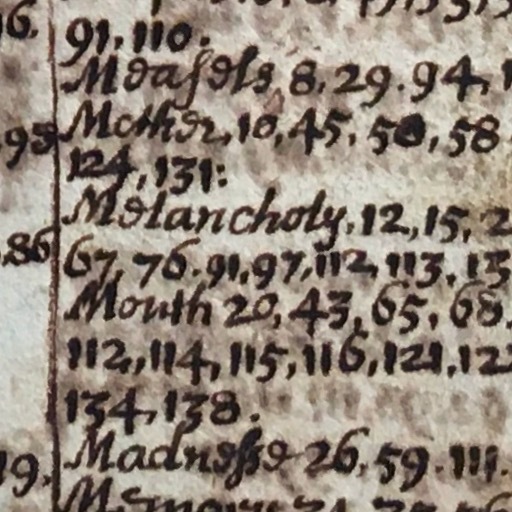 91, 110.
Measels, 8. 29. 94,
Mother, 10, 45, 50, 58
124, 131:
Melancholy. 12, 15, 2
67, 76. 91, 97, 112, 113. 13
Mouth 20, 43, 65, 68,
112, 114, 115, 116, 121, 12
134, 138.
Madnesse 26, 59. 111.